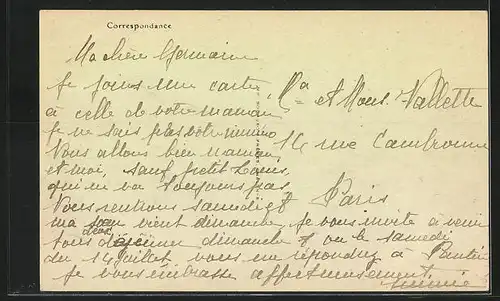 Correspondance
Ma chère Germaine
Je joins une carte
à celle de votre maman
je ne sais plus votre numéro
Vous allons bien maman
et moi, sauf petit Louis,
qui ne va toujours pas
Nous rentrons samedi et
ma vient dimanche, je vous invite à venir
tous deux dimanche ou le samedi
du 14 juillet vous me répondrez à Pantin
je vous embrasse affectueusement
Me et Mons. Vallette
14 rue Cambronne
Paris